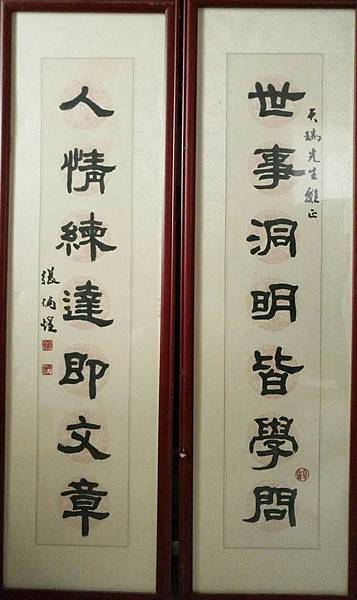 世事洞明皆學問
天瑞先生雅正
人情練達即文章
張炳煌